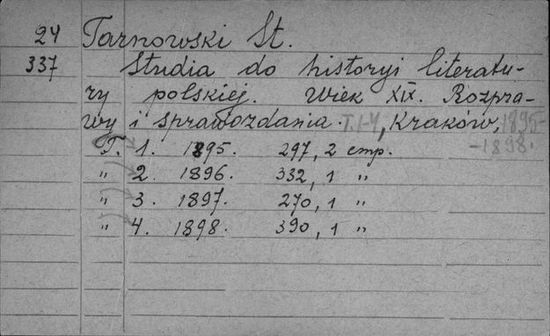 24 Tarnowski St.
337 Studia do historyi literatu-
ry polskiej. Wiek XIX. Rozpra-
wy i sprawozdania. T. 1-4, Kraków, 1895-
-1898.
T. 1. 1895. 297, 2 стр.
" 2. 1896. 332, 1 "
" 3. 1897. 270, 1 "
" 4. 1898. 390, 1 "